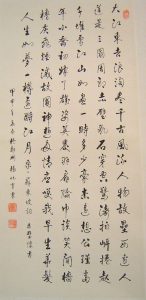 大江東去浪淘盡千古風流人物故壘西邊人
道是三國周郎赤壁亂石穿空驚濤拍岸捲起
千堆雪江山如畫一時多少豪傑遙想公瑾當
年小喬初嫁了雄姿英發羽扇綸巾談笑間檣
櫓灰飛煙滅故國神遊多情應笑我早生華髮
人生如夢一樽還酹江月 蘇東坡詞